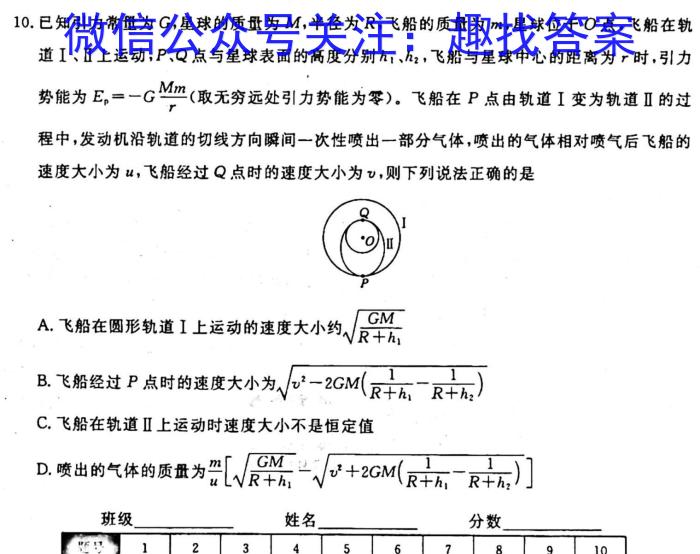 10. 已知引力常量为 G,星球的质量为 M,半径为 R,飞船的质量为 m,星球位于 O 点,飞船在轨
微信公众号关注:趣找答案
道Ⅰ、Ⅱ上运动,P、Q 点与星球表面的高度分别h₁、h₂,飞船与星球中心的距离为 r 时,引力
势能为 Eₚ=-G Mm/r (取无穷远处引力势能为零)。飞船在 P 点由轨道Ⅰ变为轨道Ⅱ的过
程中,发动机沿轨道的切线方向瞬间一次性喷出一部分气体,喷出的气体相对喷气后飞船的
速度大小为 u,飞船经过 Q 点时的速度大小为 v,则下列说法正确的是
Q
Ⅰ
O
Ⅱ
P
A. 飞船在圆形轨道Ⅰ上运动的速度大小约√(GM/(R+h₁))
B. 飞船经过 P 点时的速度大小为√(v²-2GM(1/(R+h₁)-1/(R+h₂)))
C. 飞船在轨道Ⅱ上运动时速度大小不是恒定值
D. 喷出的气体的质量为 m/u[√(GM/(R+h₁))-√(v²+2GM(1/(R+h₁)-1/(R+h₂)))]
班级 姓名 分数
题号 1 2 3 4 5 6 7 8 9 10